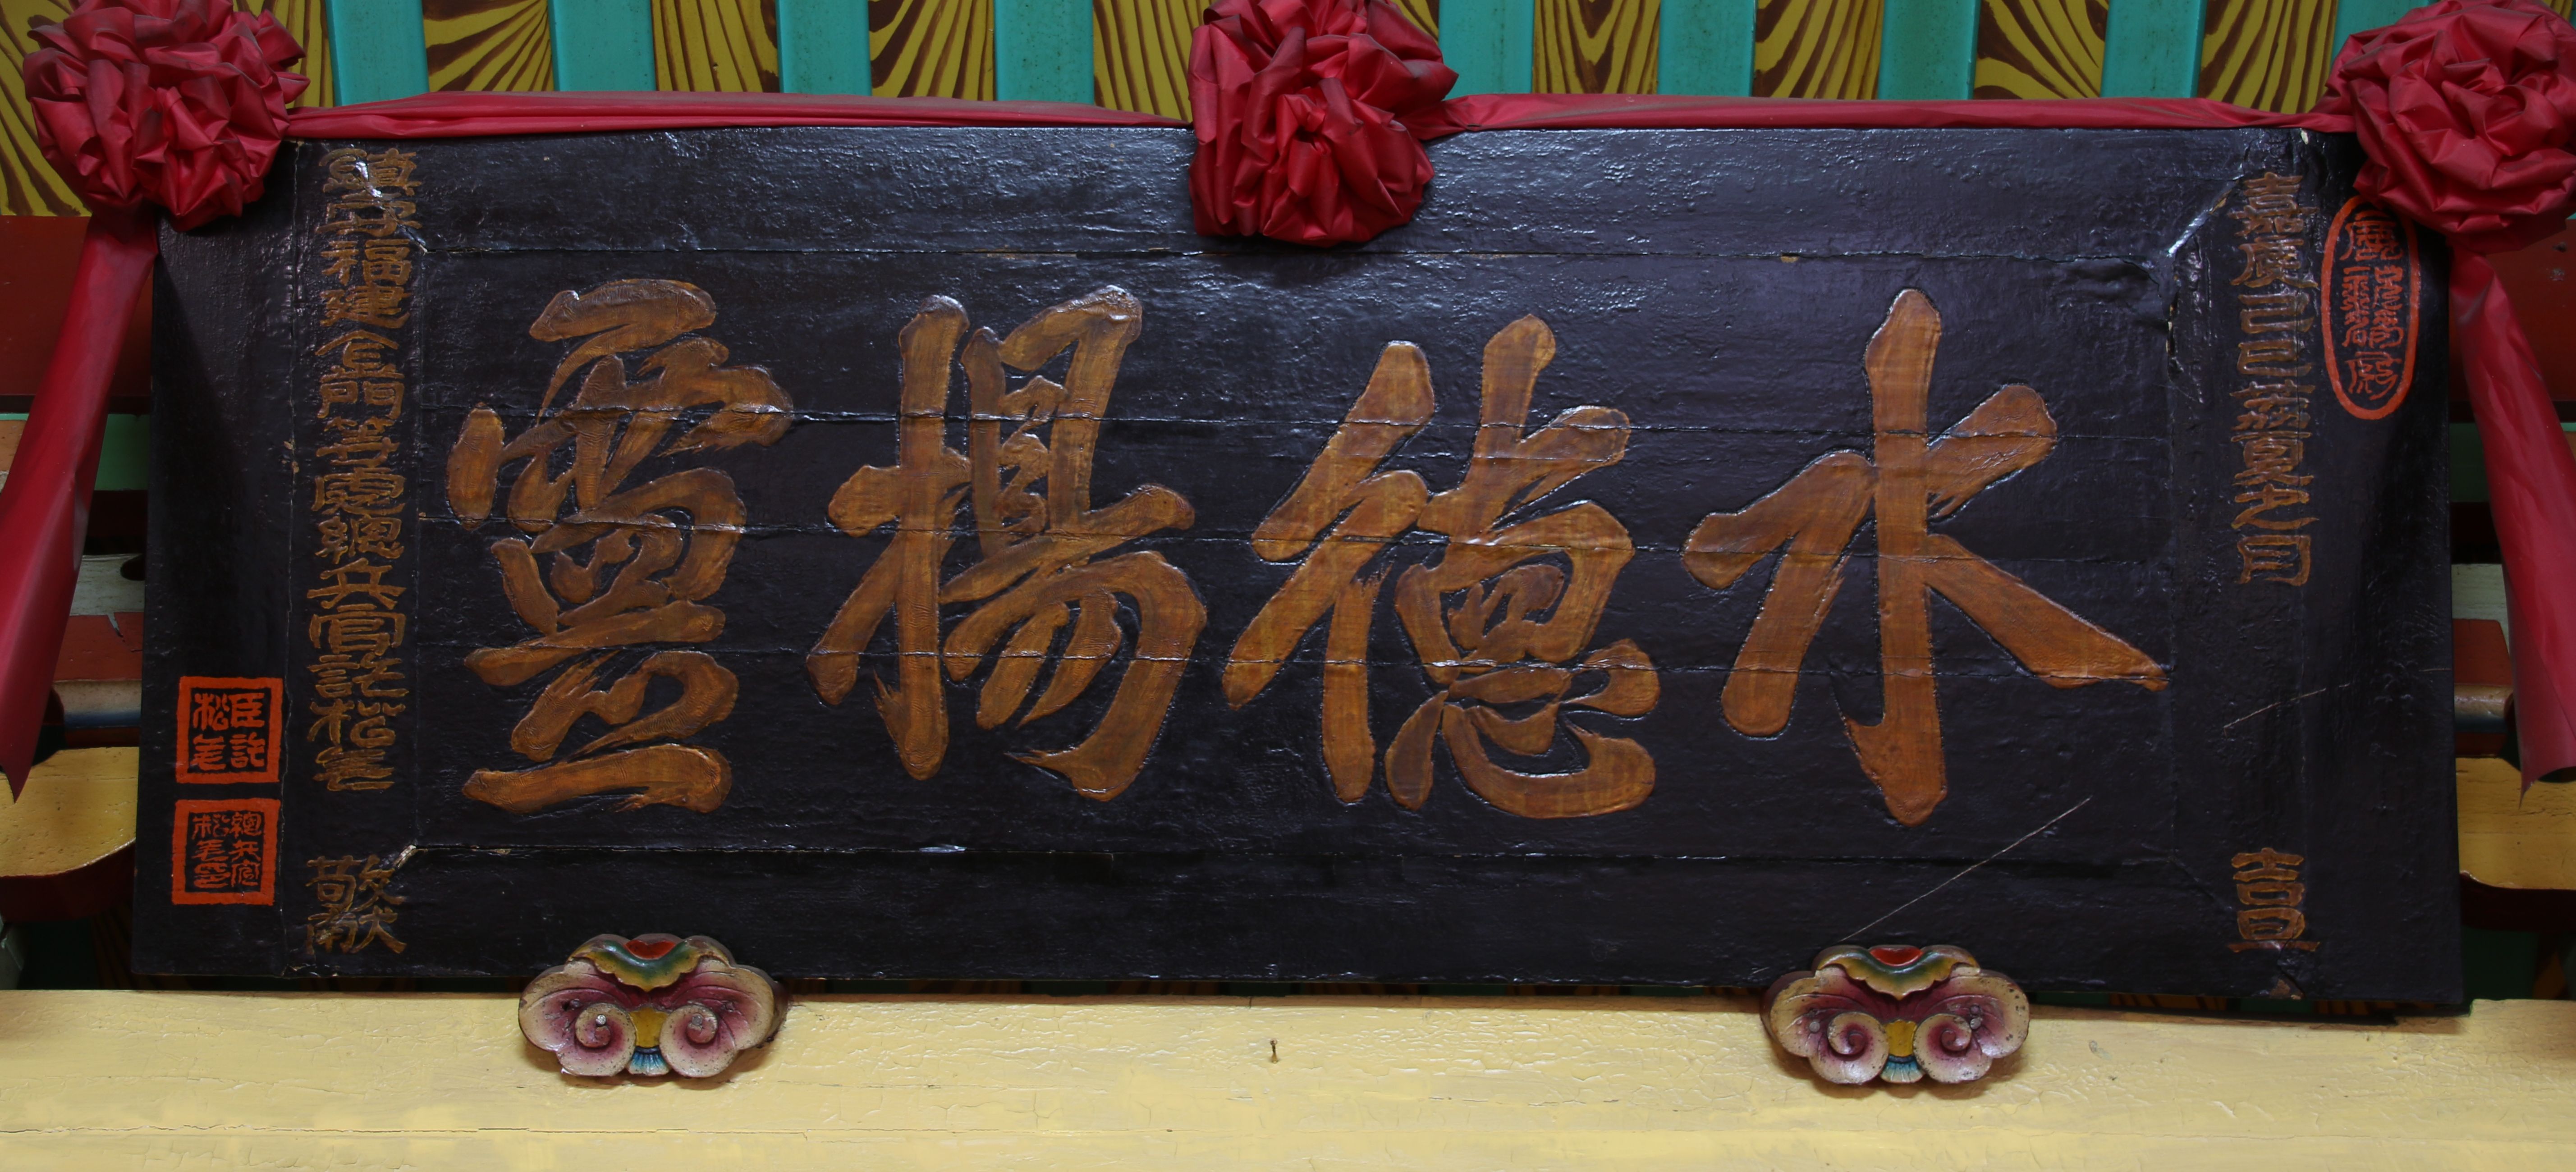 嘉慶己巳荔夏之月 吉旦
水德揚靈
鎮守福建金門等處總兵官許松年 敬獻
臣許松年
總兵官松年印